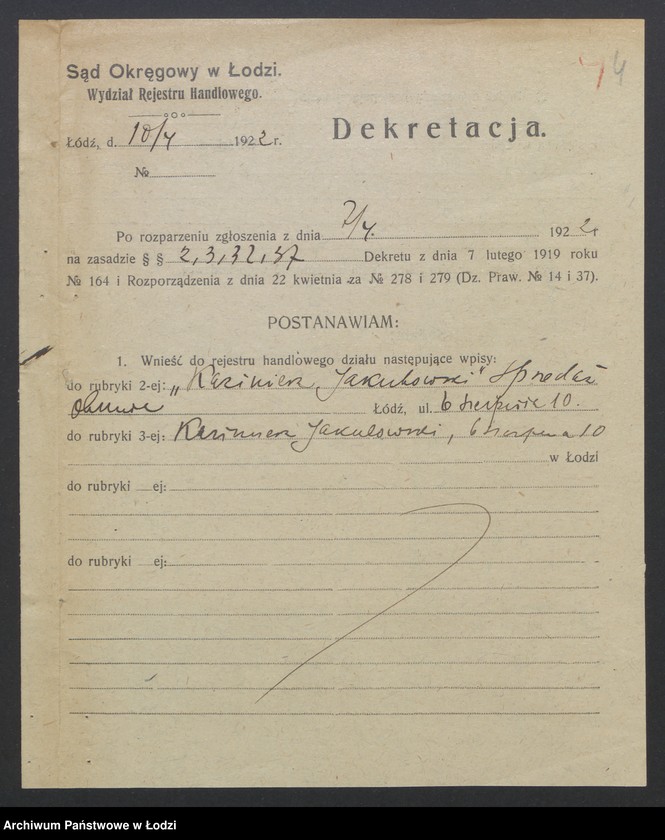 44
Sąd Okręgowy w Łodzi.
Wydział Rejestru Handlowego.
Łódź, d. 10/4 1922 r.
Dekretacja.
№
Po rozparzeniu zgłoszenia z dnia 7/4. 1922 r
na zasadzie § § 2,3,32,37 Dekretu z dnia 7 lutego 1919 roku
№ 164 i Rozporządzenia z dnia 22 kwietnia za № 278 i 279 (Dz. Praw. № 14 i 37).
POSTANAWIAM:
1. Wnieść do rejestru handlowego działu następujące wpisy:
do rubryki 2-ej: „Kazimierz Jakubowski" sprzedaż
Łódź, ul. 6 Sierpnia 10.
do rubryki 3-ej: Kazimierz Jakubowski, 6 sierpnia 10
w Łodzi
do rubryki ej:
do rubryki ej:
Archiwum Państwowe w Łodzi